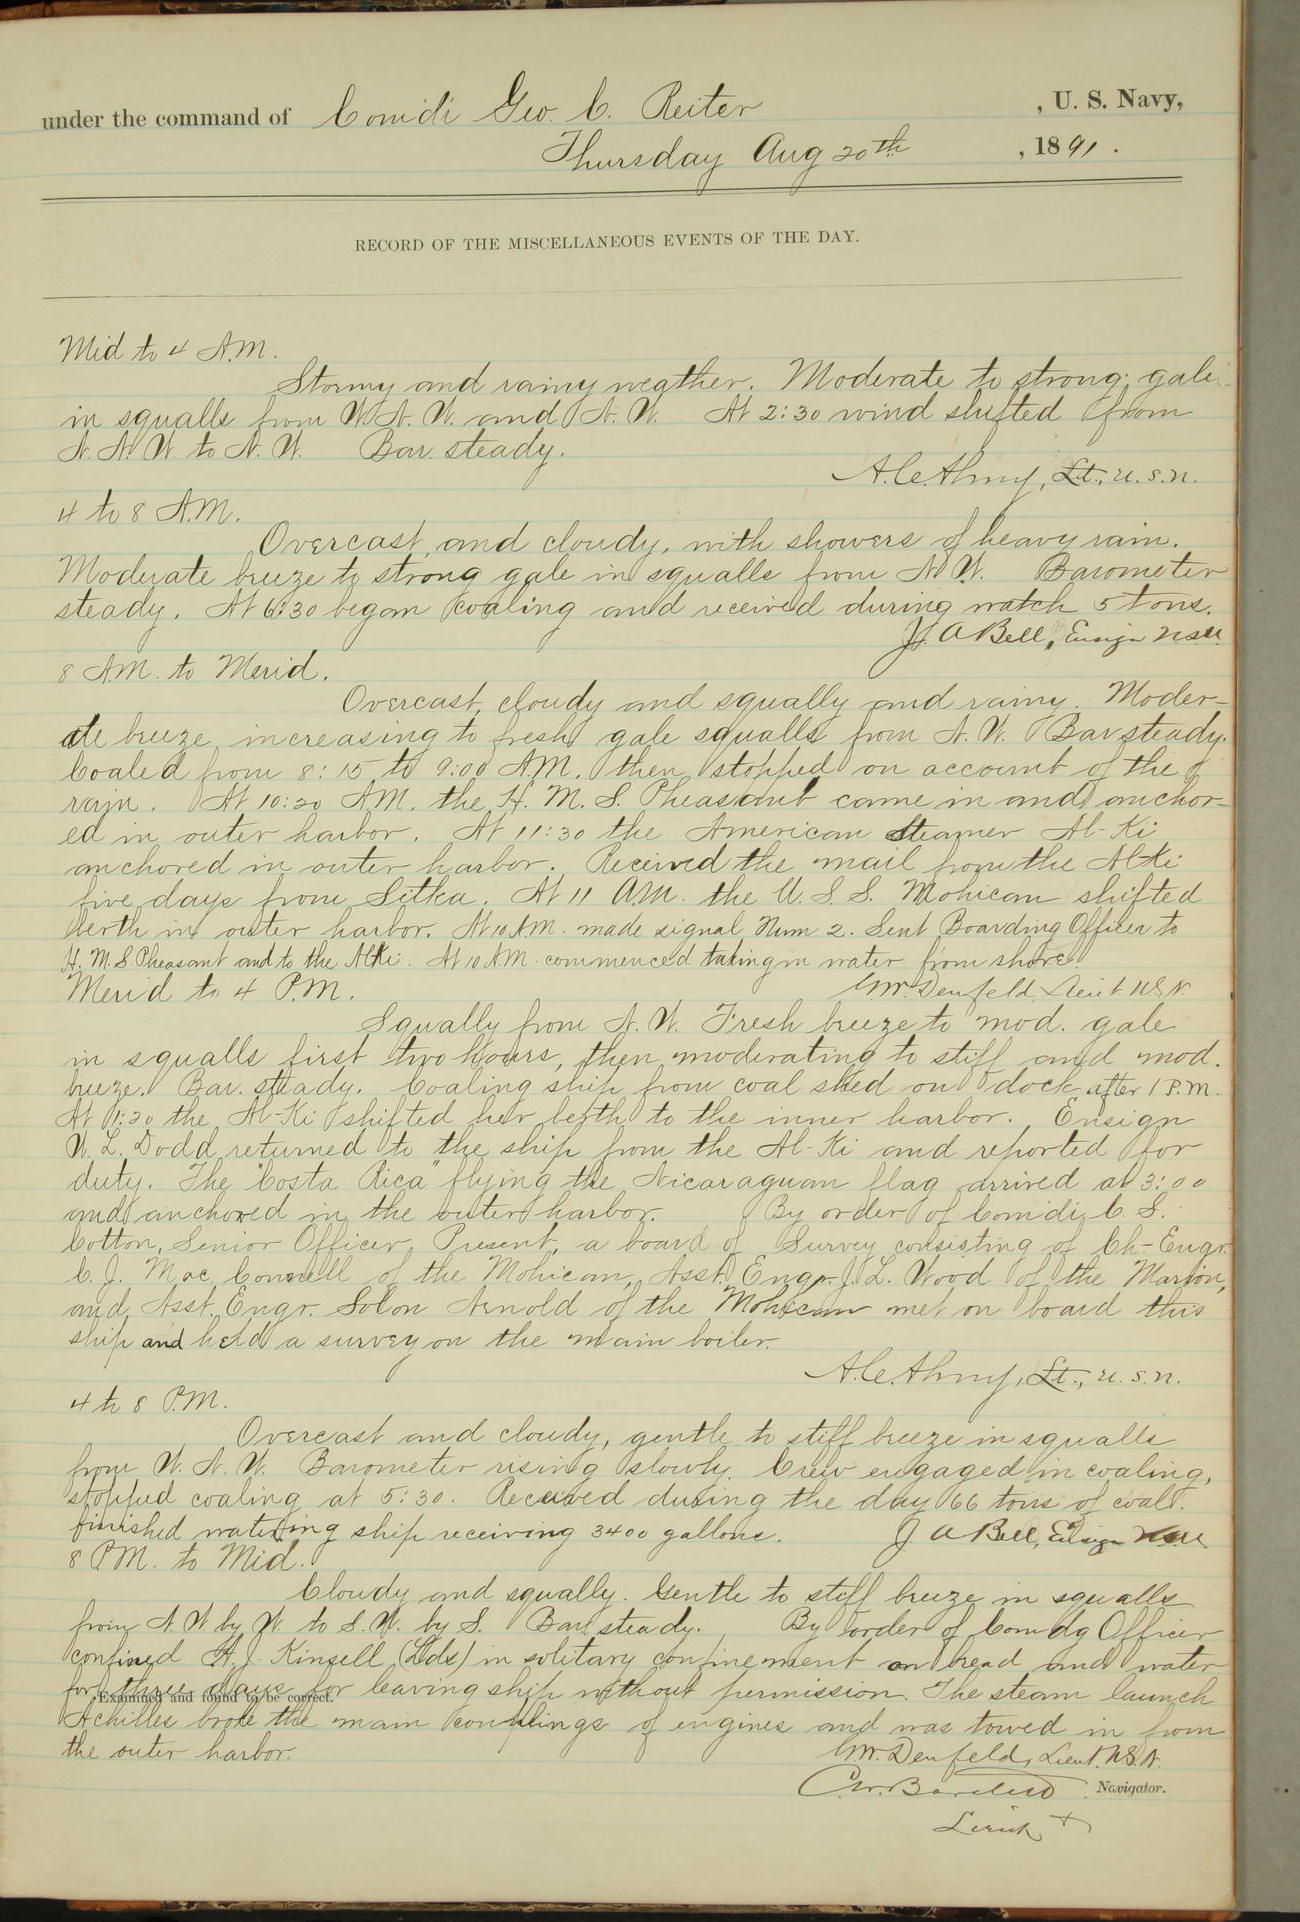 under the command of Comdr Geo. C. Reiter , U. S. Navy,
Thursday Aug 20th , 1891.
RECORD OF THE MISCELLANEOUS EVENTS OF THE DAY.
Mid to 4 A.M.
Stormy and rainy weather. Moderate to strong gale
in squalls from W.N.W. and N.W. At 2:30 wind shifted from
N.N.W. to N.W. Bar. steady.
A.C. Almy, Lt., U.S.N.
4 to 8 A.M.
Overcast and cloudy, with showers of heavy rain.
Moderate breeze to strong gale in squalls from N.W. Barometer
steady. At 6:30 began coaling and received during watch 5 tons.
J. A Bell, Ensign USN
8 A.M. to Merid.
Overcast, cloudy and squally and rainy. Moder-
ate breeze increasing to fresh gale squalls from N.W. Bar steady.
Coaled from 8:15 to 9:00 A.M. then stopped on account of the
rain. At 10:20 A.M. the H.M.S. Pheasant came in and anchor-
ed in outer harbor. At 11:30 the American Steamer Al-Ki
anchored in outer harbor. Received the mail from the Al-Ki
five days from Sitka. At 11 A.M. the U.S.S. Mohican shifted
berth in outer harbor. At 10 A.M. made signal Num 2. Sent Boarding Officer to
H.M.S. Pheasant and to the Al-Ki. At 10 A.M. commenced taking in water from shore.
Merid to 4 P.M. Denfeld, Lieut U.S.N.
Squally from N.W. Fresh breeze to mod. gale
in squalls first two hours, then moderating to stiff and mod.
breeze. Bar. steady. Coaling ship from coal shed on dock after 1 P.M.
At 1:30 the Al-Ki shifted her berth to the inner harbor. Ensign
W. L. Dodd returned to the ship from the Al-Ki and reported for
duty. The "Costa Rica" flying the Nicaraguan flag arrived at 3:00
and anchored in the outer harbor. By order of Comdr. C. S.
Cotton, Senior Officer Present, a board of Survey consisting of Ch-Engr.
C. J. Mac Connell of the Mohican, Asst. Engr. J. L. Wood of the Marion,
and Asst. Engr. Solon Arnold of the Mohican met on board this
ship and held a survey on the main boiler.
A.C. Almy, Lt., U.S.N.
4 to 8 P.M.
Overcast and cloudy, gentle to stiff breeze in squalls
from W.N.W. Barometer rising slowly. Crew engaged in coaling,
stopped coaling at 5:30. Received during the day 66 tons of coal.
finished watering ship receiving 3400 gallons. J. A Bell, Ensign
8 P.M. to Mid.
Cloudy and squally. Gentle to stiff breeze in squalls
from N.W by W. to S.W. by S. Bar steady. By order of Comdg Officer
confined H.J. Kinsell (Lds) in solitary confinement on bread and water
for three days for leaving ship without permission. The steam launch
Examined and found to be correct.
Achilles broke the main couplings of engines and was towed in from
the outer harbor. Denfeld, Lieut. U.S.N.
Navigator.